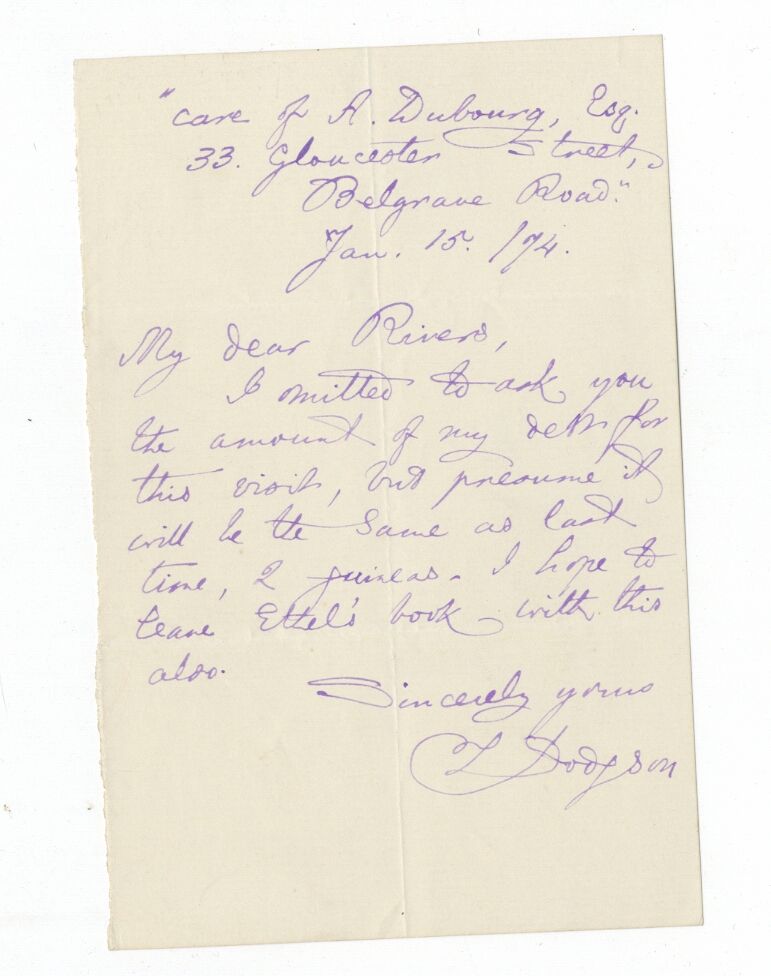 "care of A. Dubourg, Esq.
33. Gloucester Street,
Belgrave Road."
Jan. 15. /74.
My dear Rivers,
I omitted to ask you
the amount of my debt for
this visit, but presume it
will be the same as last
time, 2 guineas. I hope to
leave Ethel's book with this
also.
Sincerely yours
CL Dodgson